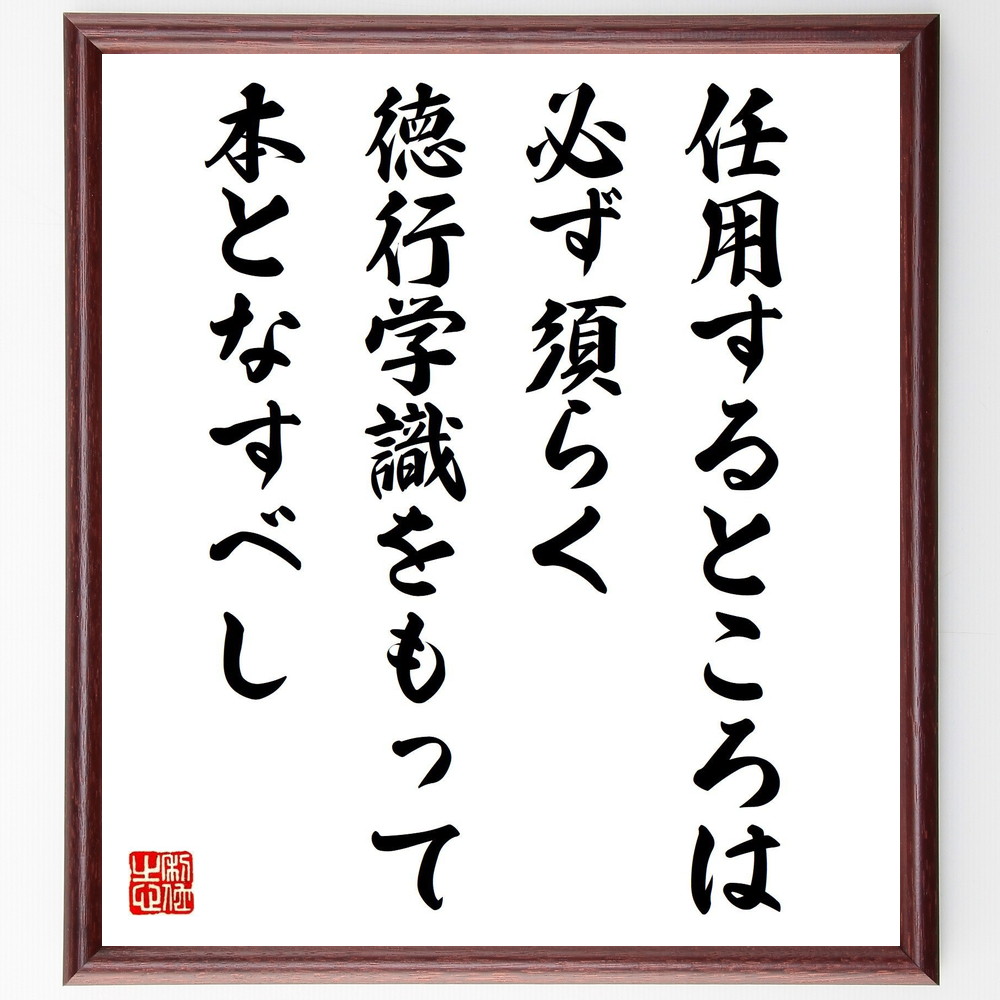 任用するところは
必ず須らく
徳行学識をもって
本となすべし